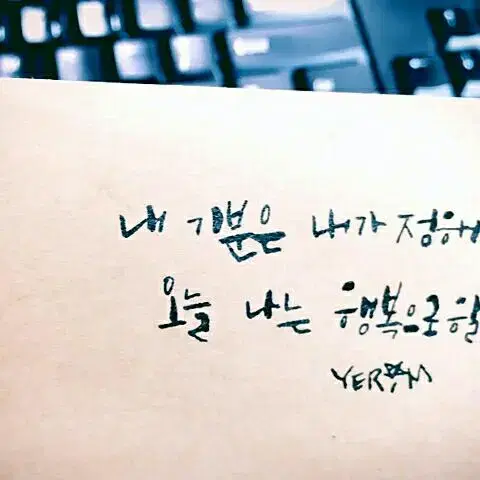 내 기분은 내가 정해
오늘 나는 행복으로 할
YER☆M